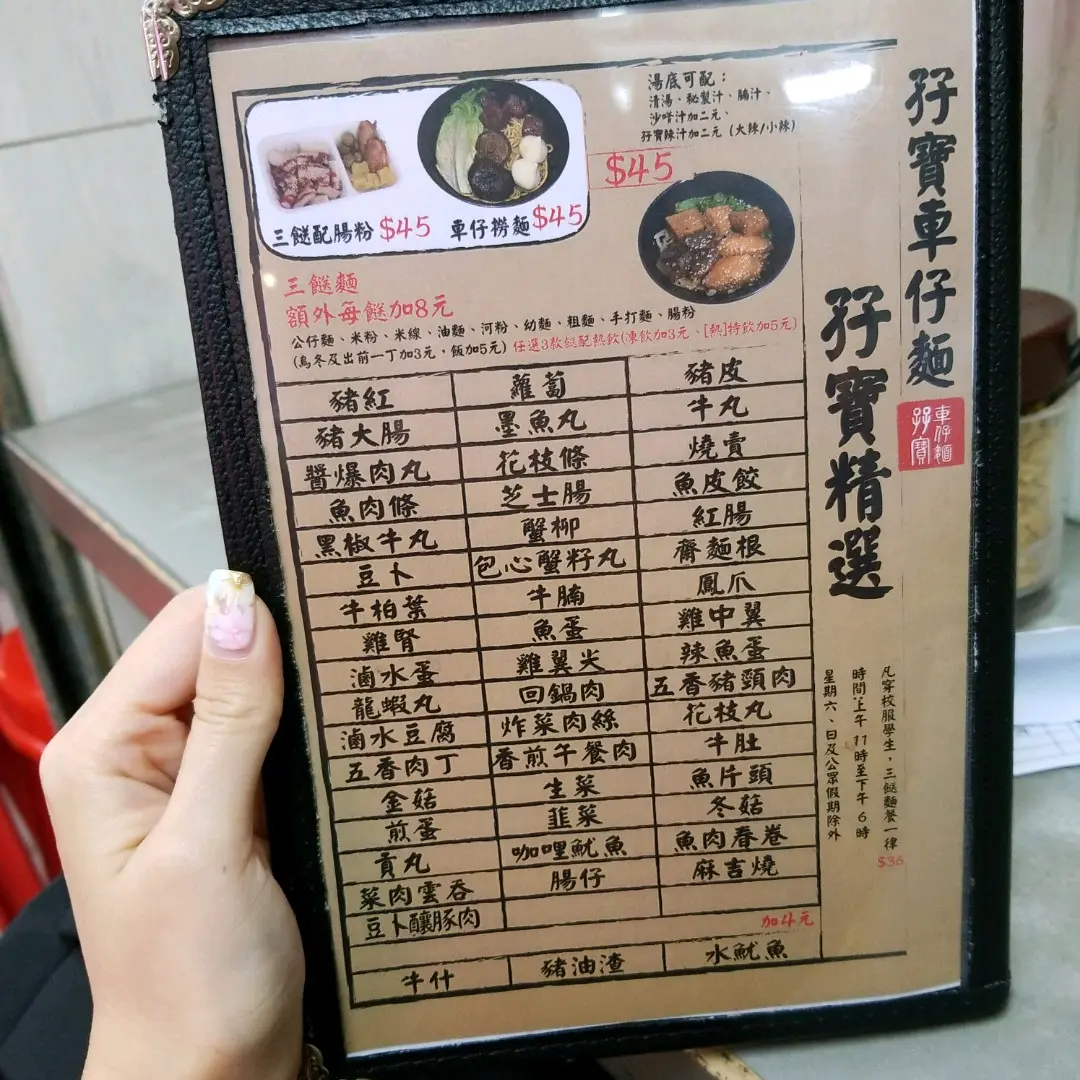 孖寶車仔麵
孖寶精選
車仔麵
孖寶
湯底可配：
清湯、秘製汁、腩汁、
沙嗲汁加二元、
孖寶辣汁加二元 (大辣/小辣)
$45
三餸配腸粉 $45 車仔撈麵 $45
三餸麵
額外每餸加8元
公仔麵、米粉、米線、油麵、河粉、幼麵、粗麵、手打麵、腸粉
(烏冬及出前一丁加3元，飯加5元) 任選3款餸配熱飲(凍飲加3元、[熱]特飲加5元)
豬紅 蘿蔔 豬皮
豬大腸 墨魚丸 牛丸
醬爆肉丸 花枝條 燒賣
魚肉條 芝士腸 魚皮餃
黑椒牛丸 蟹柳 紅腸
豆卜 包心蟹籽丸 齋麵根
牛柏葉 牛腩 鳳爪
雞腎 魚蛋 雞中翼
滷水蛋 雞翼尖 辣魚蛋
龍蝦丸 回鍋肉 五香豬頸肉
滷水豆腐 炸菜肉絲 花枝丸
五香肉丁 香煎午餐肉 牛肚
金菇 生菜 魚片頭
煎蛋 韮菜 冬菇
貢丸 咖哩魷魚 魚肉春卷
菜肉雲吞 腸仔 麻吉燒
豆卜釀豚肉
加4元
牛什 豬油渣 水魷魚
凡穿校服學生，三餸麵餐一律$36
時間：上午11時至下午6時
星期六、日及公眾假期除外